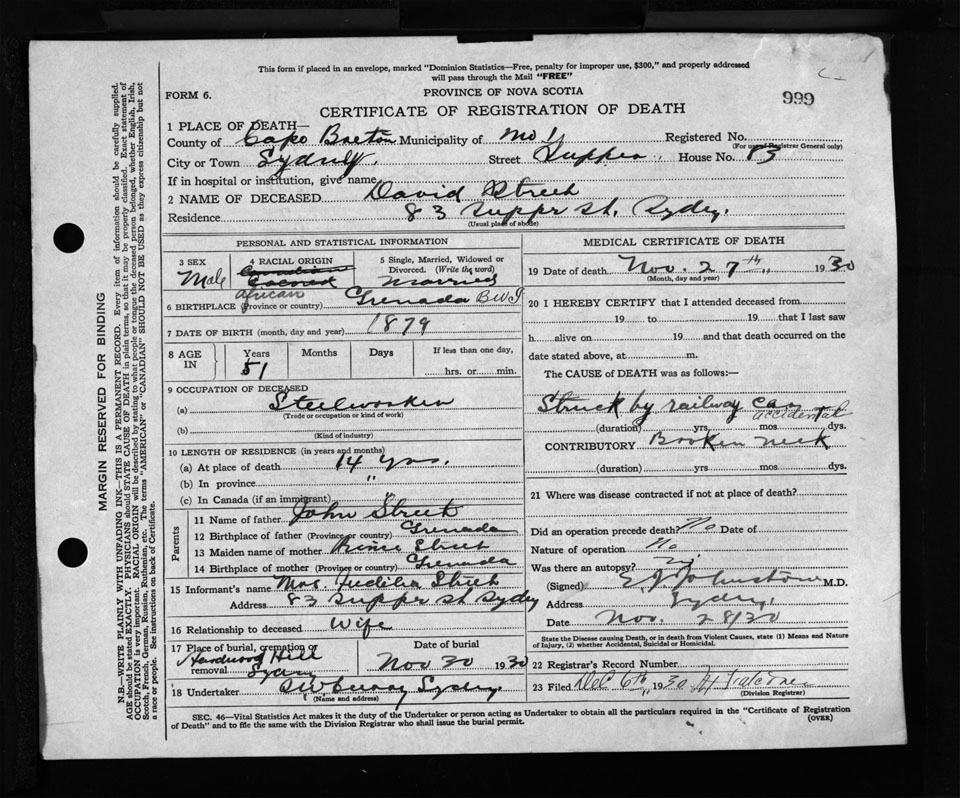 This form if placed in an envelope, marked "Dominion Statistics—Free, penalty for improper use, $300," and properly addressed
will pass through the Mail "FREE"
FORM 6.
PROVINCE OF NOVA SCOTIA
999
CERTIFICATE OF REGISTRATION OF DEATH
1 PLACE OF DEATH—
County of Cape Breton Municipality of Registered No.
(For use of Registrar General only)
City or Town Sydney Street Tupper House No. 83
If in hospital or institution, give name
2 NAME OF DECEASED David Street
Residence 83 Tupper St. Sydney.
(Usual place of abode)
PERSONAL AND STATISTICAL INFORMATION
3 SEX
Male
4 RACIAL ORIGIN
Canadian
Colored
African
5 Single, Married, Widowed or
Divorced. (Write the word)
Married
6 BIRTHPLACE (Province or country) Grenada BWI
7 DATE OF BIRTH (month, day and year) 1879
8 AGE IN
Years Months Days If less than one day,
51 hrs. or min.
9 OCCUPATION OF DECEASED
(a) Steelworker
(Trade or occupation or kind of work)
(b)
(Kind of industry)
10 LENGTH OF RESIDENCE (in years and months)
(a) At place of death 14 yrs.
(b) In province "
(c) In Canada (if an immigrant) "
Parents
11 Name of father John Street
12 Birthplace of father (Province or country) Grenada
13 Maiden name of mother Street
14 Birthplace of mother (Province or country) Grenada
15 Informant's name Mrs. Street
Address 83 Tupper St Sydney
16 Relationship to deceased Wife
17 Place of burial, cremation or
removal Hardwood Hill
Sydney
Date of burial
Nov 30 1930
18 Undertaker Sydney
(Name and address)
MEDICAL CERTIFICATE OF DEATH
19 Date of death Nov. 27th, 1930
(Month, day and year)
20 I HEREBY CERTIFY that I attended deceased from
19 to 19 that I last saw
h alive on 19 and that death occurred on the
date stated above, at m.
The CAUSE of DEATH was as follows:—
Struck by railway car
accidental
(duration) yrs. mos. dys.
CONTRIBUTORY Broken neck
(duration) yrs mos dys.
21 Where was disease contracted if not at place of death?
Did an operation precede death? No Date of
Nature of operation No
Was there an autopsy?
(Signed) Johnstone M.D.
Address Sydney
Date Nov. 28/30
State the Disease causing Death, or in death from Violent Causes, state (1) Means and Nature
of Injury, (2) whether Accidental, Suicidal or Homicidal.
22 Registrar's Record Number
23 Filed Dec 6th, 1930
(Division Registrar)
SEC. 46—Vital Statistics Act makes it the duty of the Undertaker or person acting as Undertaker to obtain all the particulars required in the "Certificate of Registration
of Death" and to file the same with the Division Registrar who shall issue the burial permit.
(OVER)
MARGIN RESERVED FOR BINDING
N.B.—WRITE PLAINLY WITH UNFADING INK—THIS IS A PERMANENT RECORD. Every item of information should be carefully supplied.
AGE should be stated EXACTLY. PHYSICIANS should STATE CAUSE OF DEATH in plain terms, so that it may be properly classified. Exact statement of
OCCUPATION is very important. RACIAL ORIGIN will be described by stating to what people or tongue the deceased person belonged, whether English, Irish,
Scotch, French, German, Russian, Ruthenian, etc. The terms "AMERICAN" or "CANADIAN" SHOULD NOT BE USED as they express citizenship but not
a race or people. See instructions on back of Certificate.